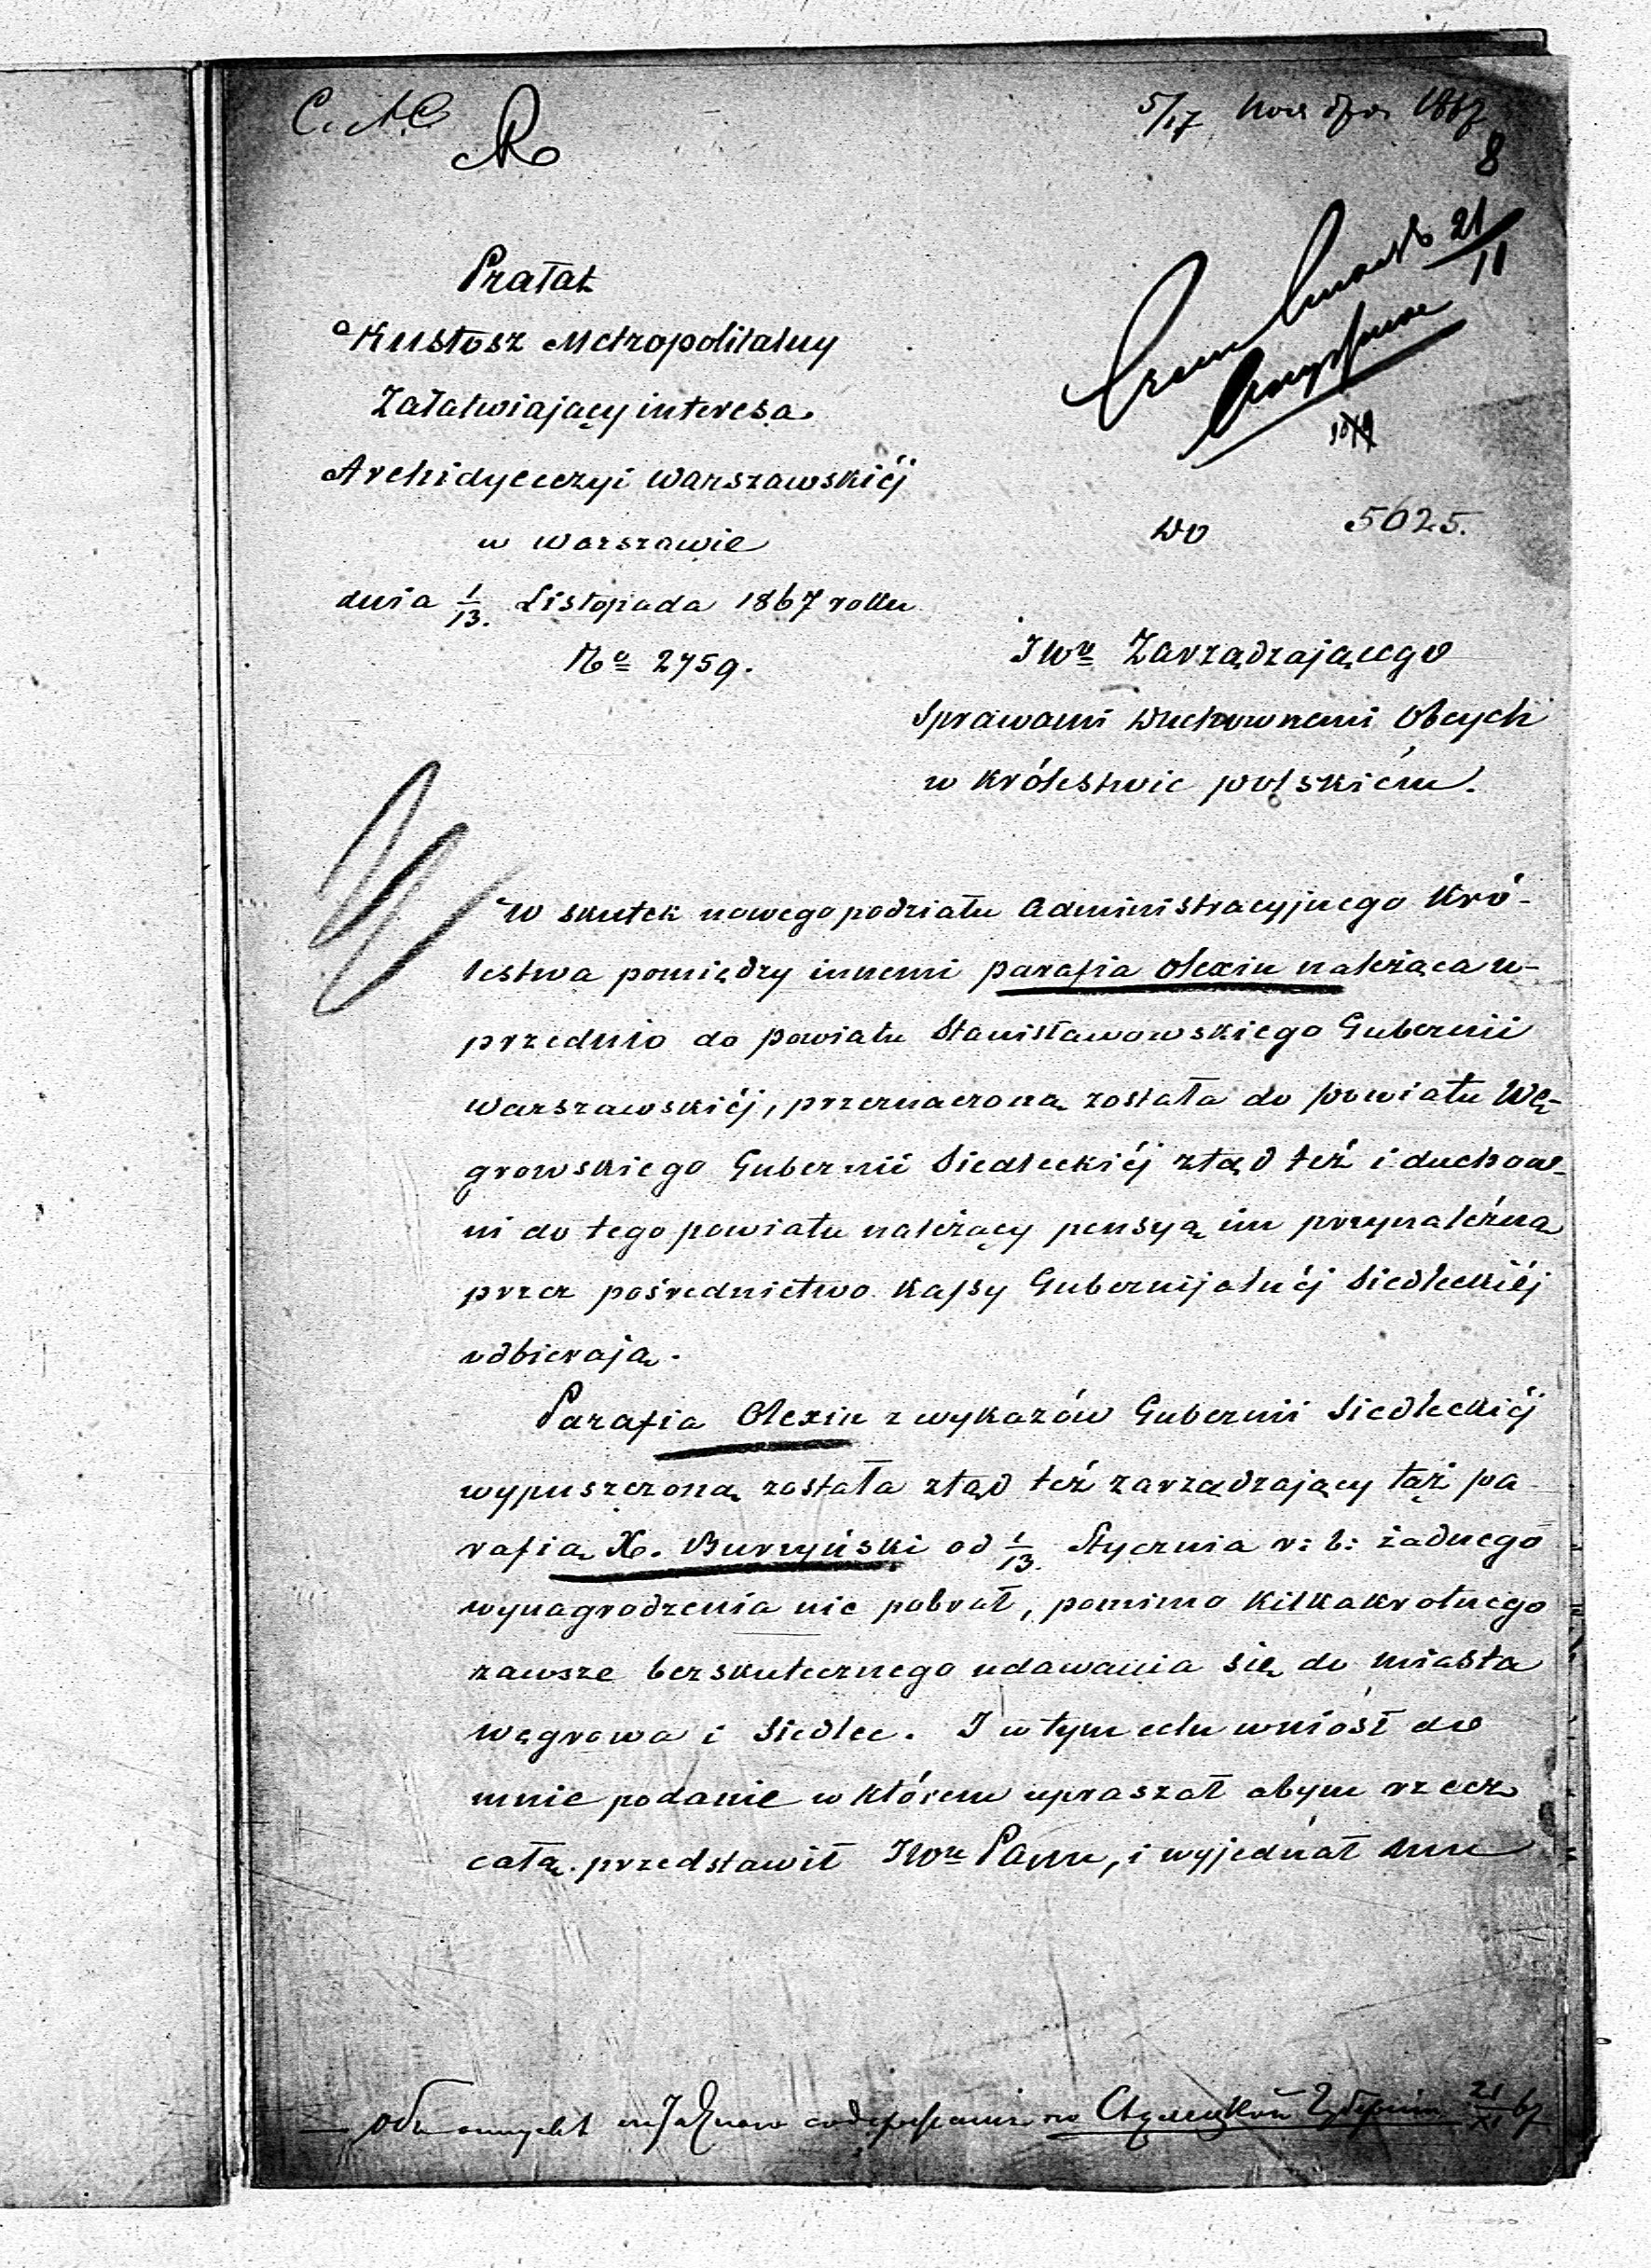 5/17 Ноября 1867
8
21/11
Prałat
Kustosz Metropolitalny
Załatwiający interesa
Archidyecezyi Warszawskiéj
w Warszawie
dnia 1/13. Listopada 1867 roku
No 2759.
Do 5625.
JWo Zarządzającego
Sprawami Duchownemi Obcych
w Królestwie polskiém.
W skutek nowego podziału Administracyjnego Kró-
lestwa pomiędzy innemi parafia Olexin należąca u-
przednio do powiatu Stanisławowskiego Gubernii
Warszawskiéj, przeznaczoną została do powiatu Wę-
growskiego Gubernii Siedleckiéj ztąd też i duchow-
ni do tego powiatu należący pensyą im przynależną
przez pośrednictwo Kassy Gubernijalnéj Siedleckiéj
odbierają.
Parafia Olexin z wykazów Gubernii Siedleckiéj
wypuszczoną została ztąd też zarządzający tąż pa-
rafią X. Burzyński od 1/13. Stycznia r: b: żadnego
wynagrodzenia nie pobrał, pomimo kilkakrotnego
zawsze bezskutecznego udawania się do miasta
Węgrowa i Siedlec. I w tym celu wniósł do
mnie podanie w którem upraszał abym rzecz
całą przedstawił JWu Panu, i wyjednał mu
21/XI 67